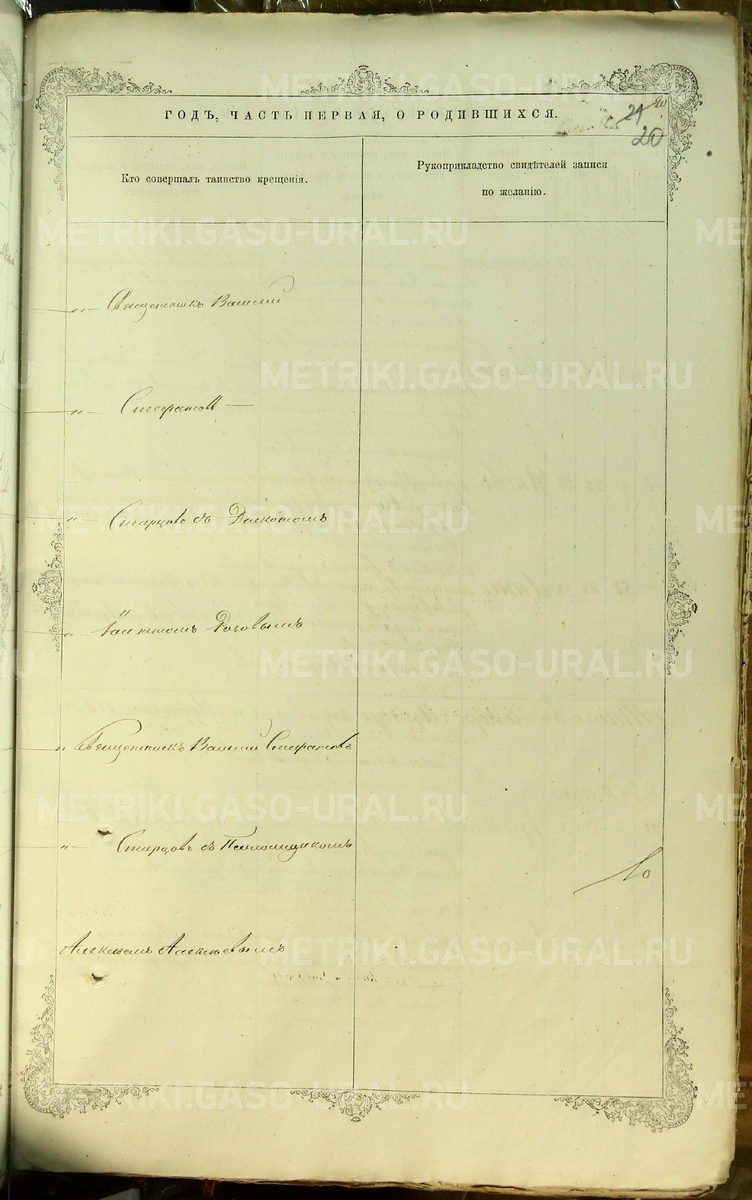 ГОДЪ, ЧАСТЬ ПЕРВАЯ, О РОДИВШИХСЯ.
21
20
Кто совершалъ таинство крещенія.
Рукоприкладство свидѣтелей записи
по желанію.
Священникъ Василій
Стефановъ
Старцовъ съ Дьякономъ
Роговымъ
Священникъ Василій Стефановъ
Старцовъ съ Псаломщикомъ
Алексѣевымъ
METRIKI.GASO-URAL.RU